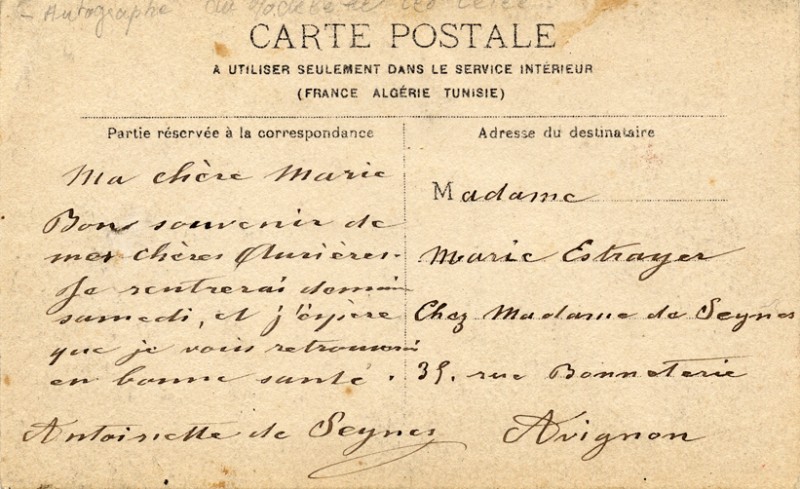 - Autographe du
CARTE POSTALE
A UTILISER SEULEMENT DANS LE SERVICE INTÉRIEUR
(FRANCE ALGÉRIE TUNISIE)
Partie réservée à la correspondance
Ma chère Marie
Bons souvenir de
mes chères
Je rentrerai demain
samedi, et j'espère
que je vous retrouverai
en bonne santé.
Antoinette de Seynes
Adresse du destinataire
Madame
Marie Estrayer
Chez Madame de Seynes
35. rue Bonneterie
Avignon